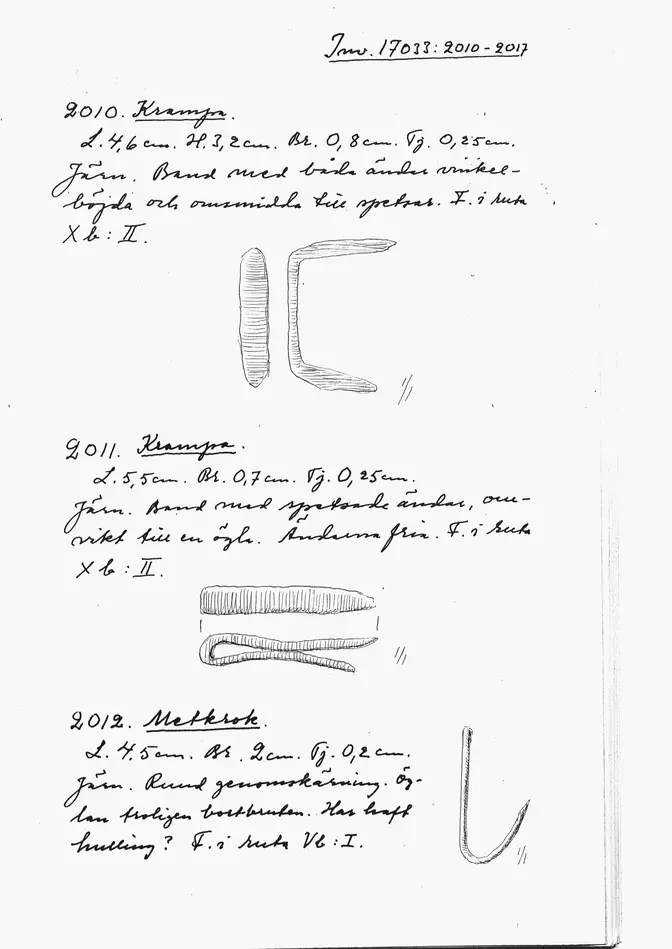 Inv. 17033: 2010-2017
2010. Krampa.
L. 4,6 cm. H. 3,2 cm. Br. 0,8 cm. Tj. 0,25 cm.
Järn. Band med båda ändar vinkel-
böjda och omsmidda till spetsar. F. i ruta
Xb: II.
1/1
2011. Krampa.
L. 5,5 cm. Br. 0,7 cm. Tj. 0,25 cm.
Järn. Band med spetsade ändar, om-
vikt till en ögla. Ändarna fria. F. i ruta
Xb: II.
1/1
2012. Metkrok.
L. 4,5 cm. Br. 2 cm. Tj. 0,2 cm.
Järn. Rund genomskärning. Ög-
lan troligen bortbruten. Har haft
hulling? F. i ruta Vb: I.
1/1